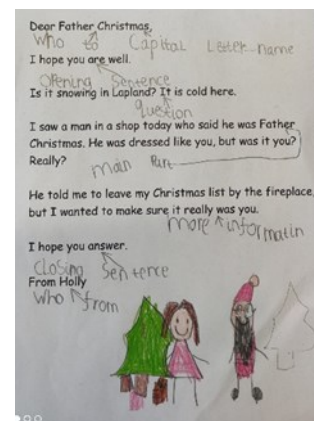 Dear Father Christmas,
Who to Capital Letter name
I hope you are well.
Opening Sentence
Is it snowing in Lapland? It is cold here.
question
I saw a man in a shop today who said he was Father
Christmas. He was dressed like you, but was it you?
Really?
main Part
He told me to leave my Christmas list by the fireplace,
but I wanted to make sure it really was you.
more informatin
I hope you answer.
Closing Sentence
From Holly
Who from